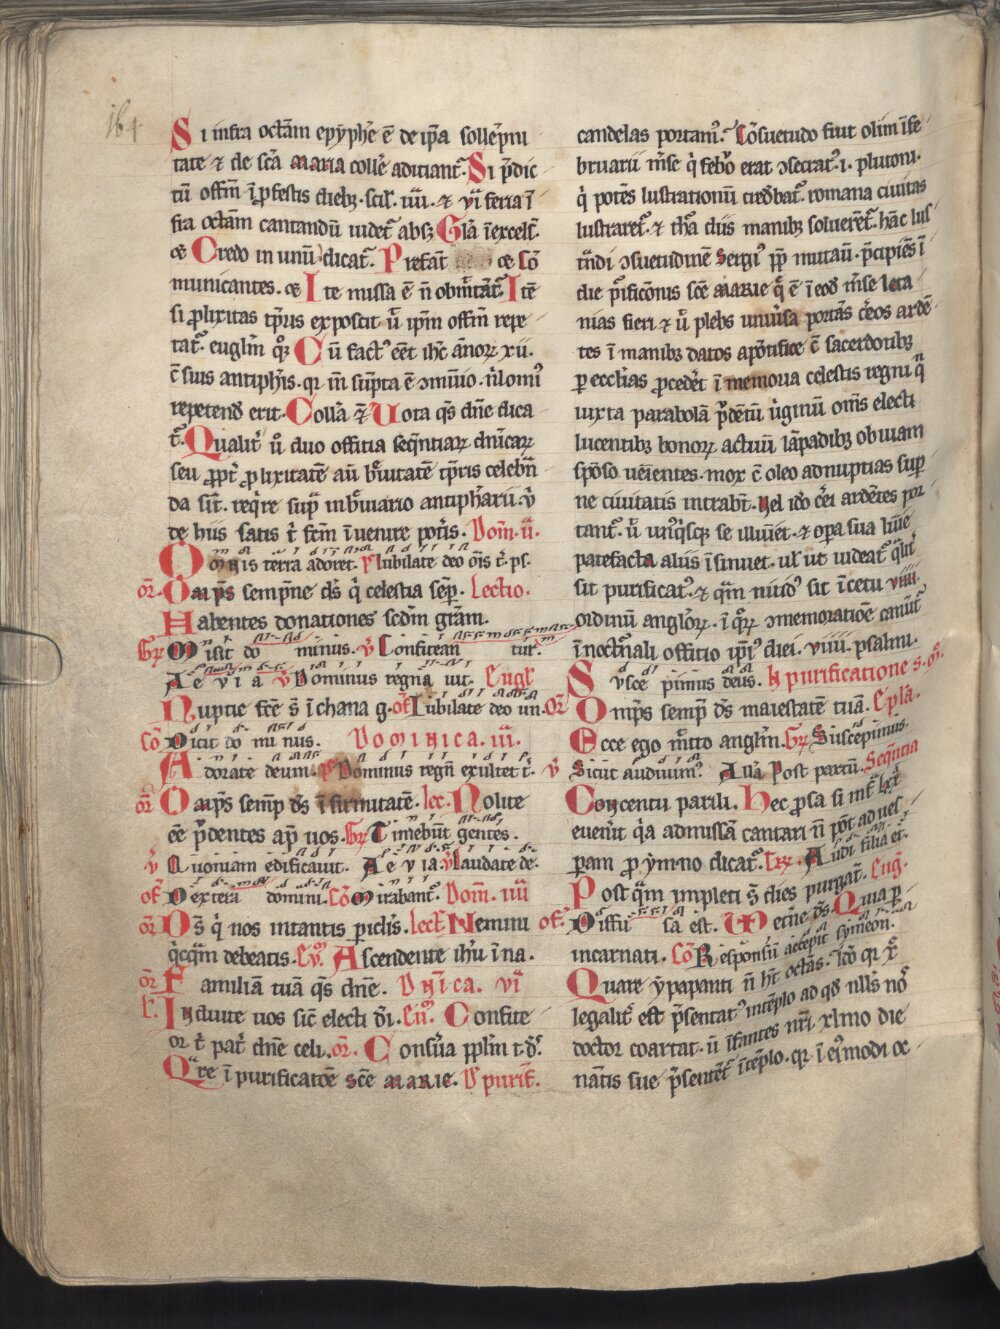 164
Si infra octam̄ epyph̄e ē de ip̄a sollēpni
tate ⁊ de sc̄a maria colle aditiant᷑. Si p̄dic
tū offm̄ ī p̄festis dieb; scił. iiii. ⁊ vi feria ī
fra octam̄ cantandū uidet᷑ absq; Glā ī excels̄.
⁊ Credo in unū dicat᷑. Prefat̄ ⁊ Cō
municantes. ⁊ Ite missa ē n̄ obmittat᷑. Itē
si prolixitas tp̄ris exposcit ū ip̄m offm̄ repe
tat᷑. euglm̄ qoq; Cū fact᷒ eēt ih̄c annoꝝ xii.
c̄ suis antiph̄is. qr
repetend erit. Collā ⁊ Uota qs dn̄e dica
t᷑. Qualit᷑ ū duo offitia seqn̄tiaꝝ dn̄icaꝝ
seu ꝓpt᷑ ꝓlixitatē aū b̄uitatē tp̄ris celebrā
da sūt. reqre sup̄ in b̄uiario antiph̄arii. v̄
de hiis satis t̄ fem̄ ī uenire pot̄is. Dom̄. ii.
Omnis terra adoret. ps Iubilate deo ōis t̄. ps.
or̄. Omp̄s sempn̄e ds̄ q̄ celestia sep̄. Lectio.
Habentes donationes scdm̄ gram̄.
Gr̄ Misit do minus. v̄ Confitean tur.
Ae v i a v̄ Dominus regna uit. Eugl̄
Nuptie fc̄e s̄ ī chana g. of̄ Iubilate deo un.
Cō Dicit do mi nus. Dominica. iii.
Adorate deum. ps Dominus regn̄ exultet t̄.
or̄ Omp̄s semp̄ ds̄ īfirmitatē. lec. Nolite
eē p̄dentes ap̄ uos. Gr̄ Timebūt gentes.
v̄ Quoniam edificauit. Ae v ia v̄ Laudate de.
of̄ Dextera domini. Cō Mirabant᷑. Dom̄. iiii
or̄ Ds̄ q̄ nos intantis pericłis. Lect̄ Nemini
q̄cq̄m debeatis. Eu᷒. Ascendente ihu ī na.
or̄ Familiā tuā qs dn̄e. Dn̄ica. vi
Ł. Induite uos sic̄ electi di. Eu᷒. Confite
or t̄ pat᷑ dn̄e celi. or̄. Consūa pplm̄ t. ds᷒.
Qre ī purificatōe sc̄e marie. D purif̄.
candelas portam᷒. Cōsuetudo fiut olim ī fe
bruarii mse q̄ febro erat ɔsecrat᷒. i. plutoni.
q̄ potēs lustrationū credbat᷑. romana ciuitas
lustraret᷑. ⁊ diis manib; soluerēt᷑. hāc lus
trādi ɔsuetudinē Sergi᷒ pp̄ mutauit. p̄cipiēs ī
die p̄ificōnis sc̄e marie q̄ ē ī eod̄ mse leta
nias fieri ⁊ ū plebs uniūsa portās c̄eos ardē
tes ī manib; datos apōtifice c̄ sacerdotib;
per eccl̄ias procedet ī memoria celestis regni q̄
iuxta parabolā p̄dētū ūginū om̄s electi
lucentib; bonoꝝ actuū lāpadib; obuiam
spōso ueīentes. mox c̄ oleo adnuptias sup̄
ne ciuitatis intrabt̄. Vel id̄o c̄ei ardētes por
tant᷑. ū unq̄sq; se illuīet ⁊ opera sua luīe
patefacta aliis īsinuet. ul᷒ ut uideat᷑ qlit᷑
sit purificat᷒. ⁊ q̄m nitid᷒ sit ī cetu viiii.
ordinū angloꝝ. ī qoꝝ ɔmemoratiōe canūt᷑
ī noctnali offitio ip̄i᷒ diei. viiii. psalmi.
Suscepimus deus. In purificatione s.
or̄ Omp̄s semp̄ ds̄ maiestatē tuā. Epła.
Ecce ego mitto anglm̄. Gr̄ Suscepimus.
v̄ Sicut audiuim᷒. Alla Post partū. Sequentia
Concentu parili. Hec prosa si
euenit qa admissā cantari n̄ pōt ad ues
peram pro ym̄no dicat᷑. Trc̄. Audi filia et.
Postq̄m impleti s̄ dies purgat̄. Eug.
of̄. Diffu sa est. VD etn̄e ds̄. Quia per
incarnati. Cō Responsū accepit symeon.
Quare ypapanti n̄ ht̄ octās. Ido qr
legalit᷑ est p̄sentat᷒ intēplo ad qd nlls nō
doctor coartat. ū īfantes nr̄i xlmo die
natis sue p̄sentēt᷑ ītēplo. qr ī ei᷒modi oc